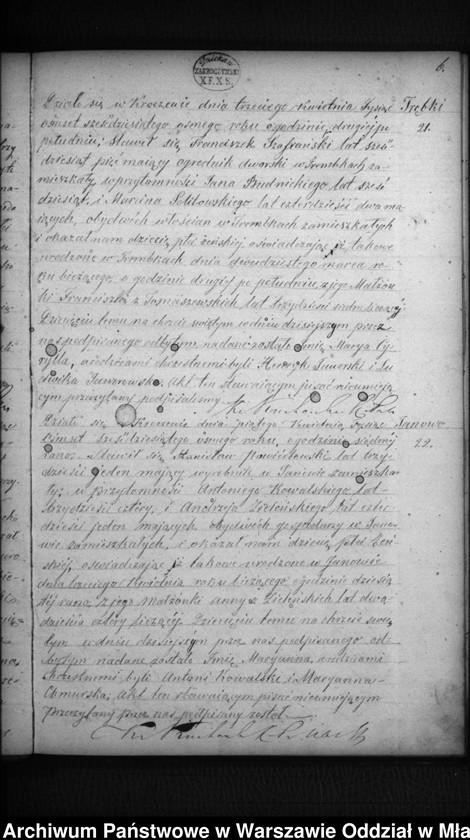 6.
ZAKROCZYMSKI
X.F.X.S.
Trębki
21.
Działo się w Kroczewie dnia trzeciego Kwietnia tysiąc
osmset sześdziesiątego osmego roku o godzinie drugiej po
południu; Stawił się Franciszek Szafrański lat sześ-
dziesiąt pięć mający ogrodnik dworski w Trembkach za-
mieszkały w przytomności Jana Budnickiego lat sześ
dziesiąt, i Marcina lat czterdzieści dwa ma
iących, obydwóch włościan w Trembkach zamieszkałych
i okazał nam dziecię płci żeńskiej oświadczając iż takowe
urodzone w Trembkach dnia dwudziestego marca ro-
ku bieżącego, o godzinie drugiej po południu z jego Małżon
ki Franciszki z Tomaszewskich, lat trzydzieści siedm liczącej
Dziecięciu temu na chrzcie świętym w dniu dzisiejszym przez
nas podpisanego odbytym nadane zostało Imię Marya Cy-
rylla, a rodzicami chrzestnemi byli Henryk i Lu
dwika Akt ten stawającym pisać nieumieją
cym przeczytany podpisaliśmy
Janowo
22.
Działo się w Kroczewie dnia piątego Kwietnia tysiąc
osmset sześdziesiątego osmego roku, o godzinie siódmej
zrana. Stawił się Stanisław lat trzy
dzieści jeden mający wyrobnik w Janowie zamieszka-
ły, w przytomności Antoniego Kowalskiego lat
trzydzieści cztery, i Andrzeja Zielońskiego lat czter
dzieści jeden mających, obydwóch gospodarzy w Jano
wie zamieszkałych, i okazał nam dziecię płci żeń
skiej, oświadczając iż takowe urodzone w Janowie
dnia trzeciego Kwietnia roku bieżącego o godzinie dziesią
tej rano, z jego Małżonki Anny z Zielińskich lat dwa
dzieścia cztery liczącej. Dziecięciu temu na chrzcie świę
tym w dniu dzisiejszym przez nas podpisanego od-
bytym nadane zostało Imię Maryanna, a rodzicami
chrzestnemi byli Antoni Kowalski i Maryanna
Chmurska. Akt ten stawającym pisać nieumiejącym
przeczytany przez nas podpisany został.
Archiwum Państwowe w Warszawie Oddział w Mła